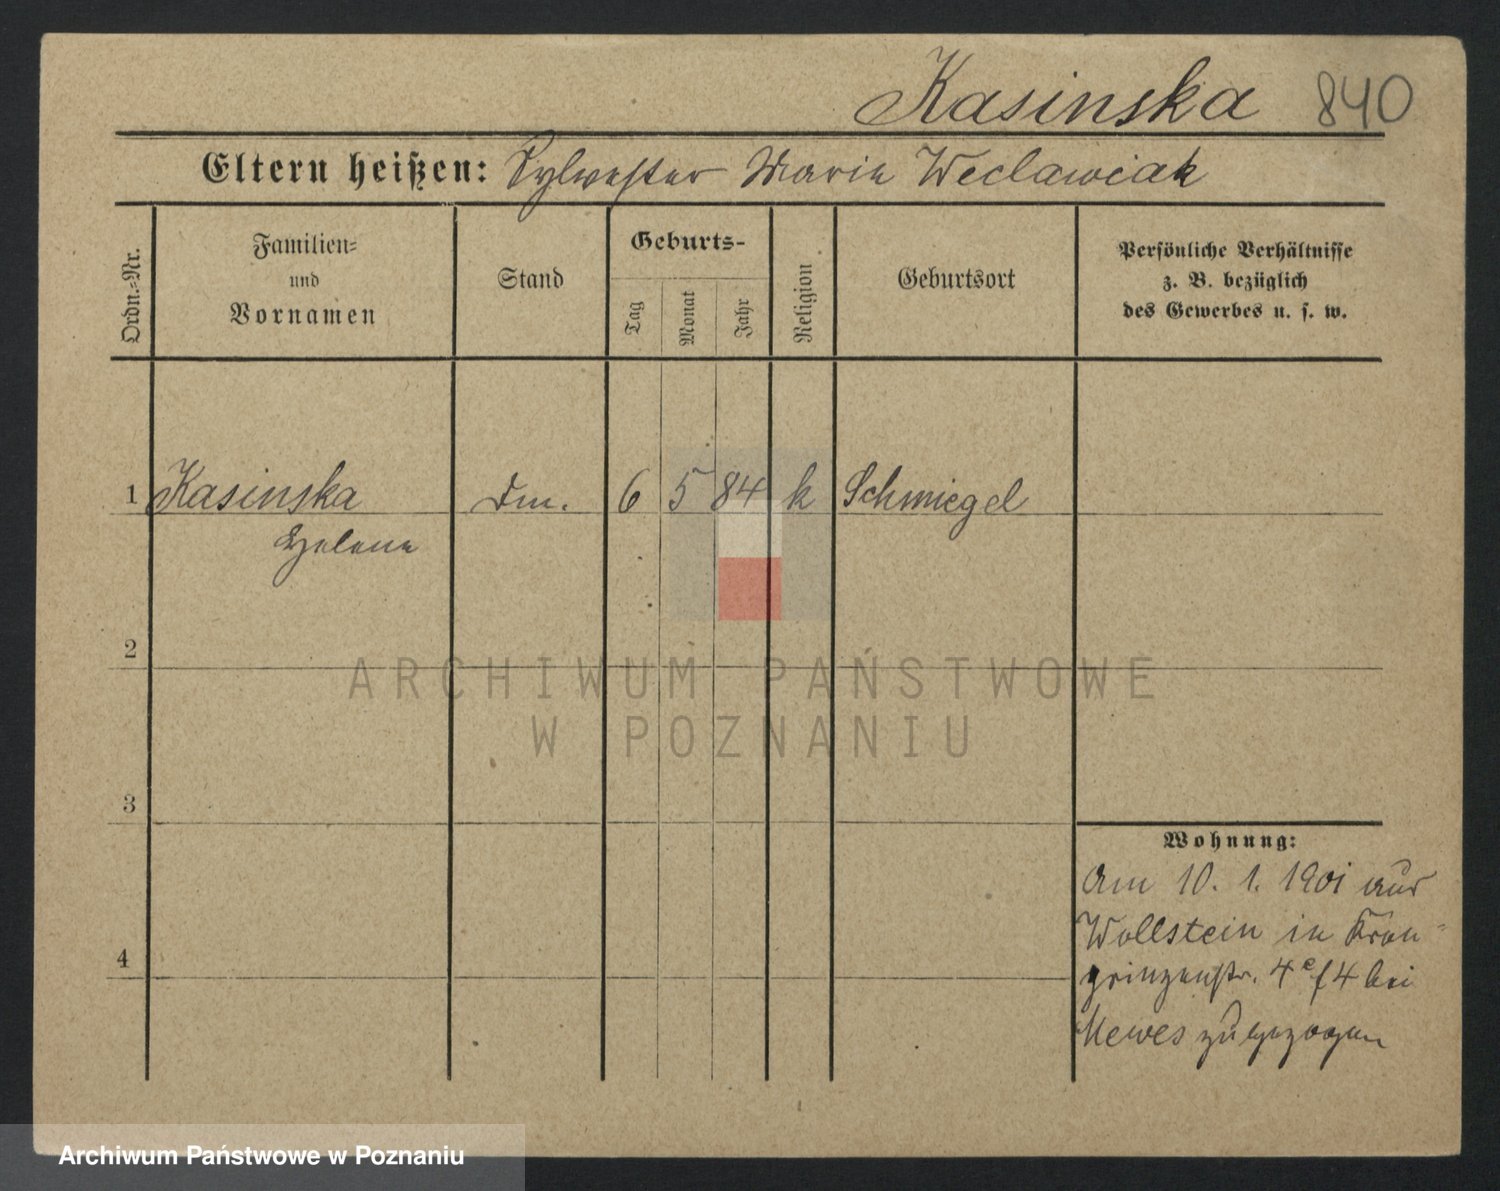 Kasinska 840
Eltern heißen: Sylvester Marie Weclawiak
Ordn.-Nr.
Familien-
und
Vornamen
Stand
Geburts-
Tag
Monat
Jahr
Religion
Geburtsort
Persönliche Verhältnisse
z. B. bezüglich
des Gewerbes u. s. w.
1 Kasinska Dm. 6 5 84 k Schmiegel
Helene
2
ARCHIWUM PAŃSTWOWE
W POZNANIU
3
Wohnung:
Am 10. 1. 1901 aus
Wollstein in Kron-
prinzenstr. 4 bei
Mewes zugezogen
4
Archiwum Państwowe w Poznaniu